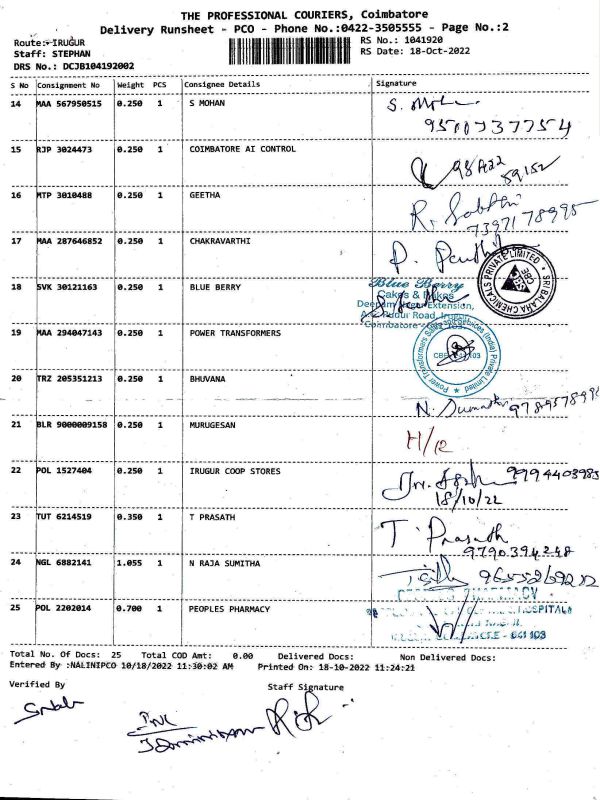 THE PROFESSIONAL COURIERS, Coimbatore
Delivery Runsheet - PCO - Phone No.:0422-3505555 - Page No.:2
Route:- IRUGUR
Staff: STEPHAN
DRS No.: DCJB104192002
RS No.: 1041920
RS Date: 18-Oct-2022
S No Consignment No Weight PCS Consignee Details Signature
14 MAA 567950515 0.250 1 S MOHAN S. Mohan
9500737754
15 RJP 3024473 0.250 1 COIMBATORE AI CONTROL
16 MTP 3010488 0.250 1 GEETHA
7397178995
17 MAA 287646852 0.250 1 CHAKRAVARTHI
SRI BALAHA CHEMICALS PRIVATE LIMITED
CBE
18 SVK 30121163 0.250 1 BLUE BERRY Blue Berry
Cakes & Bakes
Extension,
Road, Irugur
Coimbatore - 641 103.
19 MAA 294047143 0.250 1 POWER TRANSFORMERS
20 TRZ 205351213 0.250 1 BHUVANA
21 BLR 9000009158 0.250 1 MURUGESAN H/R
22 POL 1527404 0.250 1 IRUGUR COOP STORES 9994403985
18/10/22
23 TUT 6214519 0.350 1 T PRASATH T. Prasath
9790394248
24 NGL 6882141 1.055 1 N RAJA SUMITHA
25 POL 2202014 0.700 1 PEOPLES PHARMACY
641 103
Total No. Of Docs: 25 Total COD Amt: 0.00 Delivered Docs: Non Delivered Docs:
Entered By :NALINIPCO 10/18/2022 11:30:02 AM Printed On: 18-10-2022 11:24:21
Verified By Staff Signature